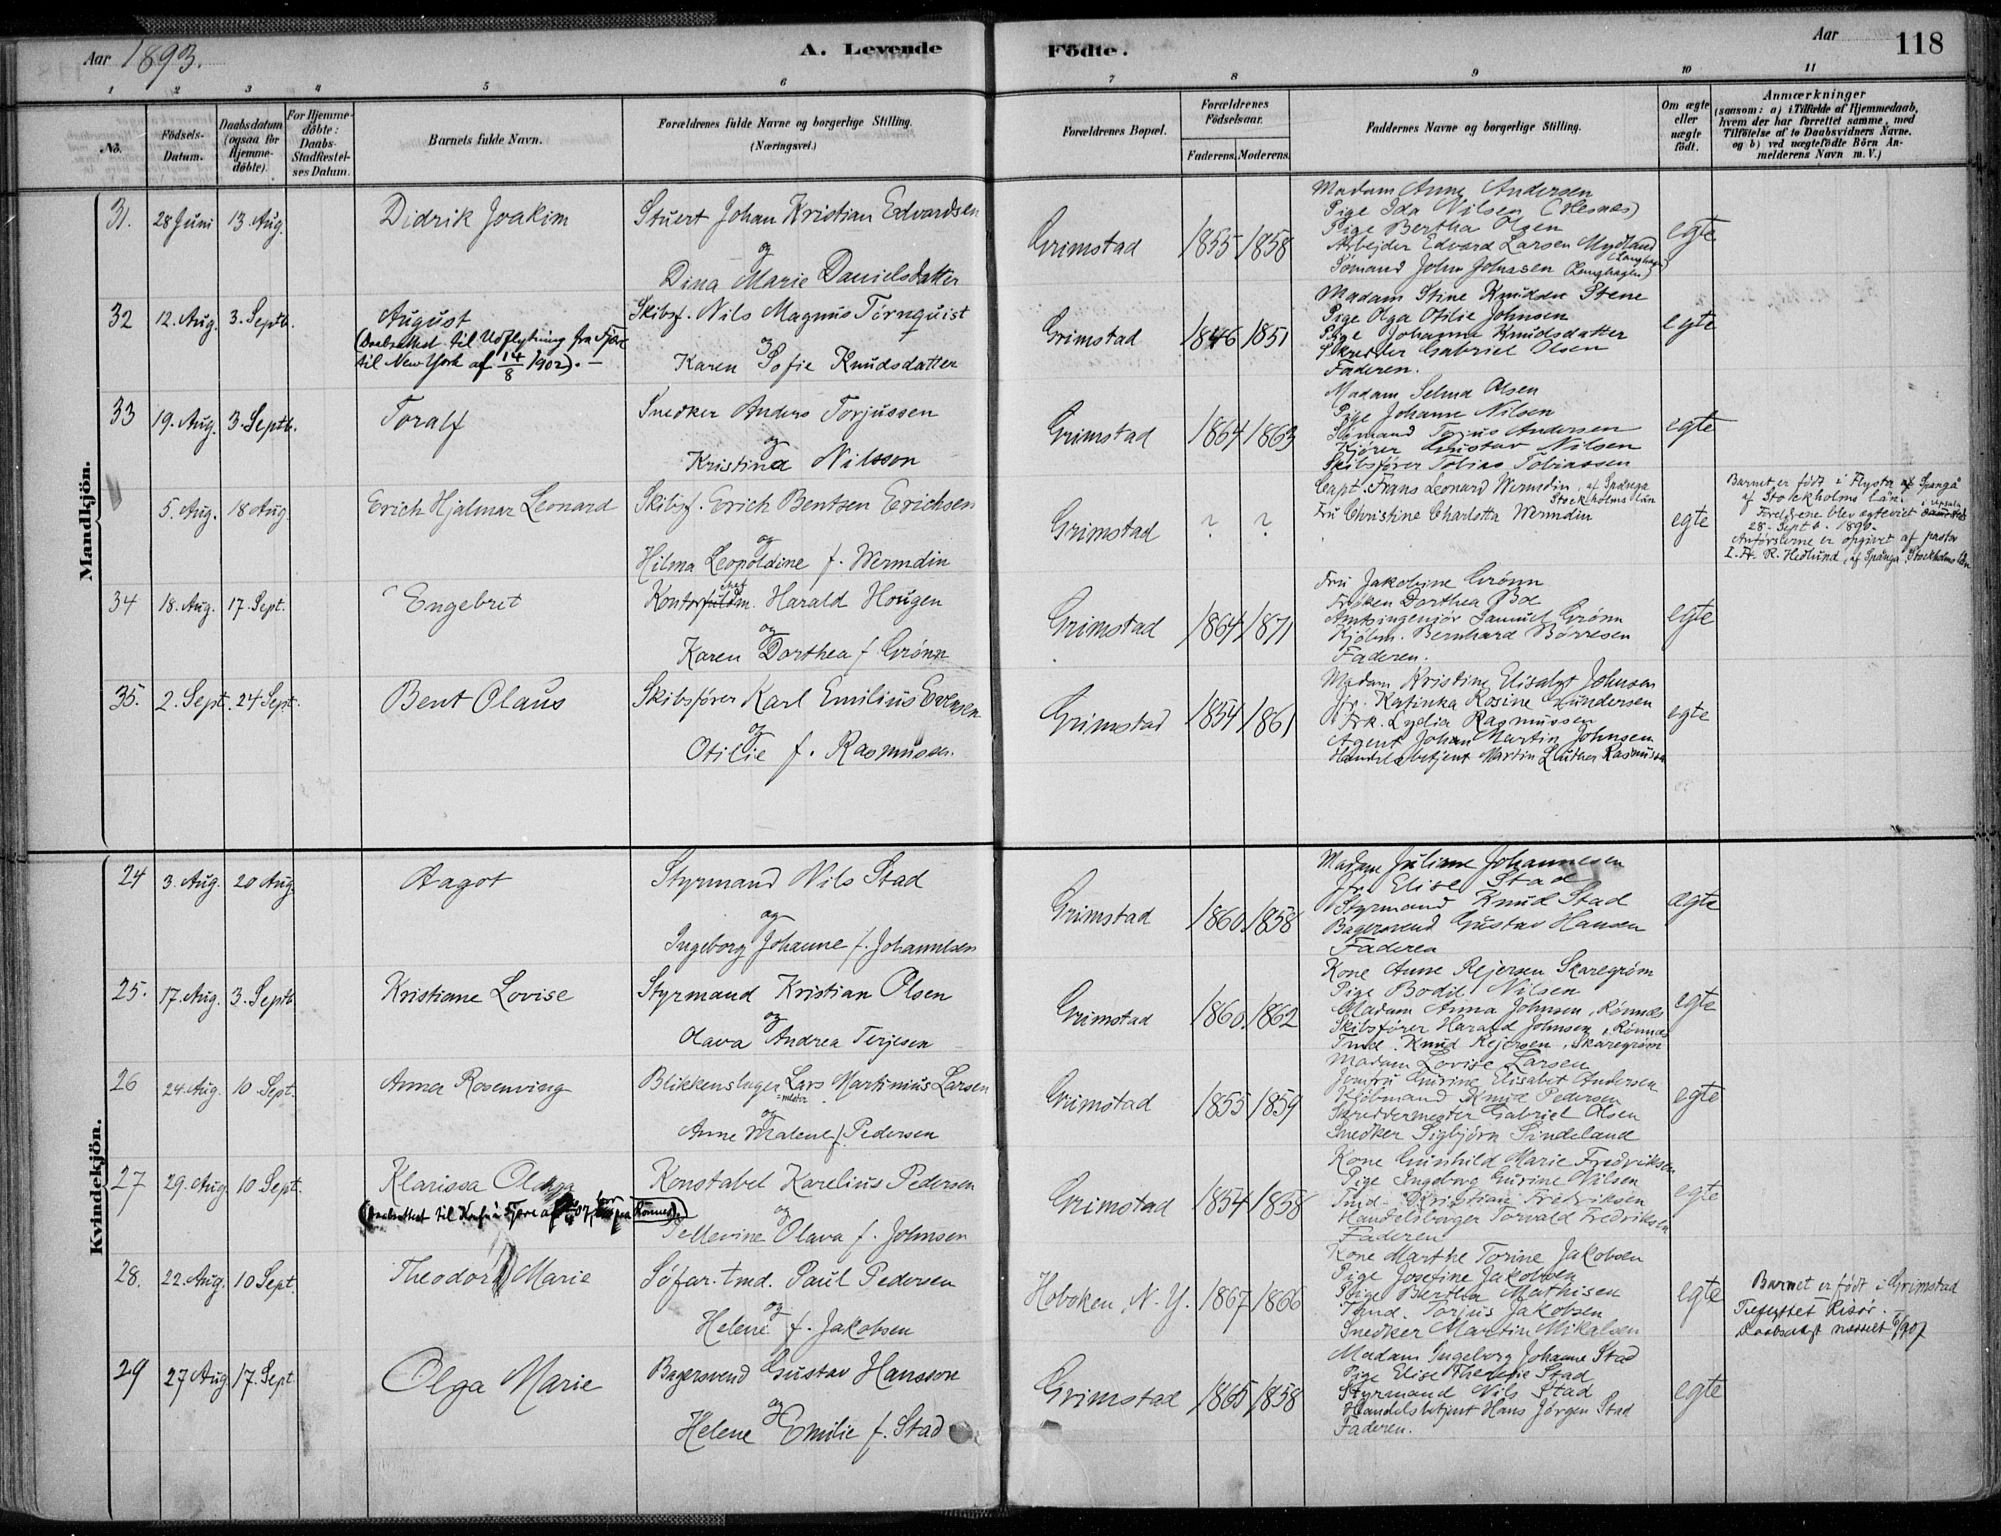 Aar 1893.
A. Levende Födte.
Aar
118
1 2 3 4 5 6 7 8 9 10 11
No.
Födsels-Datum.
Daabsdatum (ogsaa for Hjemmedøbte).
For Hjemmedöbte: Daabs-Stadfæstelses Datum.
Barnets fulde Navn.
Forældrenes fulde Navne og borgerlige Stilling. (Næringsvei.)
Forældrenes Bopæl.
Forældrenes Födselsaar.
Faderens. Moderens.
Faddernes Navne og borgerlige Stilling.
Om ægte eller uægte födt.
Anmærkninger
(saasom: a) i Tilfælde af Hjemmedaab, hvem der har forrettet samme, med Tilföielse af to Daabsvidners Navne. og b) ved uægtefödte Börn Anmelderens Navn m. V.)
Mandkjön.
31. 28 Juni 13. Aug. Didrik Joakim
Stuert Johan Kristian Edvardsen
og
Dina Marie Danielsdatter
Grimstad 1855 1858
Madam Anne Andersen
Pige Ida Nilsen (Hesnæs)
Pige Bertha Olsen
Arbejder Edvard Larsen Mydland
(Langhagen)
Sømand John Johnsen (Langhagen)
egte
32 12. Aug. 3. Septb. August
(Daabsattest til Udflytning fra Fjære
til New York af 14/8 1902). —
Skibsf. Nils Magnus Törnquist
og
Karen Sofie Knudsdatter
Grimstad 1846 1851
Madam Stine Knudsen Stene
Pige Olga Otilie Johnsen
Pige Johanna Knudsdatter
Skredder Gabriel Olsen
Faderen.
egte
33 19. Aug. 3. Septb. Toralf
Snedker Anders Torjussen
og
Kristina Nilsson
Grimstad 1864 1863
Madam Selma Olsen
Pige Johanne Nilsen
Sømand Torjus Andersen
Kjører Gustav Nilsen
Skibsfører Tobias Tobiassen
egte
5. Aug. 18 Aug. Erich Hjalmar Leonard
Skibsf. Erich Bentsen Erichsen
og
Hilma Leopoldine f. Wermdin
Grimstad ? ?
Capt. Frans Leonard Wermdin, af Spånga
Stockholms län
Fru Christine Charlotta Wermdin
egte
Barnet er født i Flysta af Spångå
af Stockholms Län.
Foreldrene blev egteviet i Uppsala
28. Septb. 1890.
Anførslerne er opgivet af pastor
I. Fr. R. Hedlund, af Spånga, Stockholms län
34 18. Aug. 17. Sept. Engebret
Kontorfuldm. Harald Hougen
og
Karen Dorthea f. Grønn
Grimstad 1864 1871
Fru Jakobine Grønn
Frøken Dorthea Boe
Amtsingeniør Samuel Grønn
Kjøbm. Bernhard Børresen
Faderen.
egte
35. 2. Sept. 24 Sept. Bent Olaus
Skibsfører Karl Emilius Evensen
og
Otilie f. Rasmussen
Grimstad 1854 1861
Madam Kristine Elisabet Johnsen
Jfr. Katinka Rosine Gundersen
Frk. Lydia Rasmussen
Agent Johan Martin Johnsen
Handelsbetjent Martin Luther Rasmussen
egte
Kvindekjön.
24 3. Aug. 20 Aug. Aagot
Styrmand Nils Stad
og
Ingeborg Johanne f. Johannesen
Grimstad 1860 1858
Madam Juliane Johannesen
Jfr. Elise Stad
Styrmand Knud Stad
Bagersvend Gustav Hansen
Faderen
ægte
25. 17. Aug. 3. Septb. Kristiane Lovise
Styrmand Kristian Olsen
og
Olava Andrea Terjesen
Grimstad 1860 1862
Kone Anne Rejersen Skaregrøm
Pige Bodil Nilsen
Madam Anna Johnsen, Rønnes
Skibsfører Harald Johnsen, Rønnes
Tmd. Knud Rejersen, Skaregrøm
egte
26 24. Aug. 10 Sept. Anna Rosenving
Blikkenslagermester Lars Martinius Larsen
og
Anne Malene f. Pedersen
Grimstad 1855 1859
Madam Lovise Larsen
Jomfru Gurine Elisabet Andersen
Kjøbmand Knud Pedersen
Skreddermester Gabriel Olsen
Snedker Sigbjørn Sindeland
egte
27 29. Aug. 10 Sept. Klarissa Olava
Konstabel Karelius Pedersen
og
Tellevine Olava f. Johnsen
Grimstad 1854 1858
Kone Gunhild Marie Fredriksen
Pige Ingeborg Gurine Nilsen
Tmd. Kristian Fredriksen
Handelsborger Torvald Fredriksen
Faderen
egte
28. 22. Aug. 10 Sept. Theodora Marie
Søfar. tmd. Paul Pedersen
og
Helene f. Jakobsen
Hoboken, N. Y. 1867 1866
Kone Marthe Torine Jakobsen
Pige Josefine Jakobsen
Pige Bertha Mathisen
Tmd. Torjus Jakobsen
Snedker Martin Mikalsen
egte
Barnet er født i Grimstad
29 27 Aug. 17. Sept. Olga Marie
Bagersvend Gustav Hansson
og
Helene Emilie f. Stad
Grimstad 1865 1858
Madam Ingeborg Johanne Stad
Pige Elise Therese Stad
Styrmand Nils Stad
Handelsbetjent Hans Jørgen Stad
Faderen.
egte